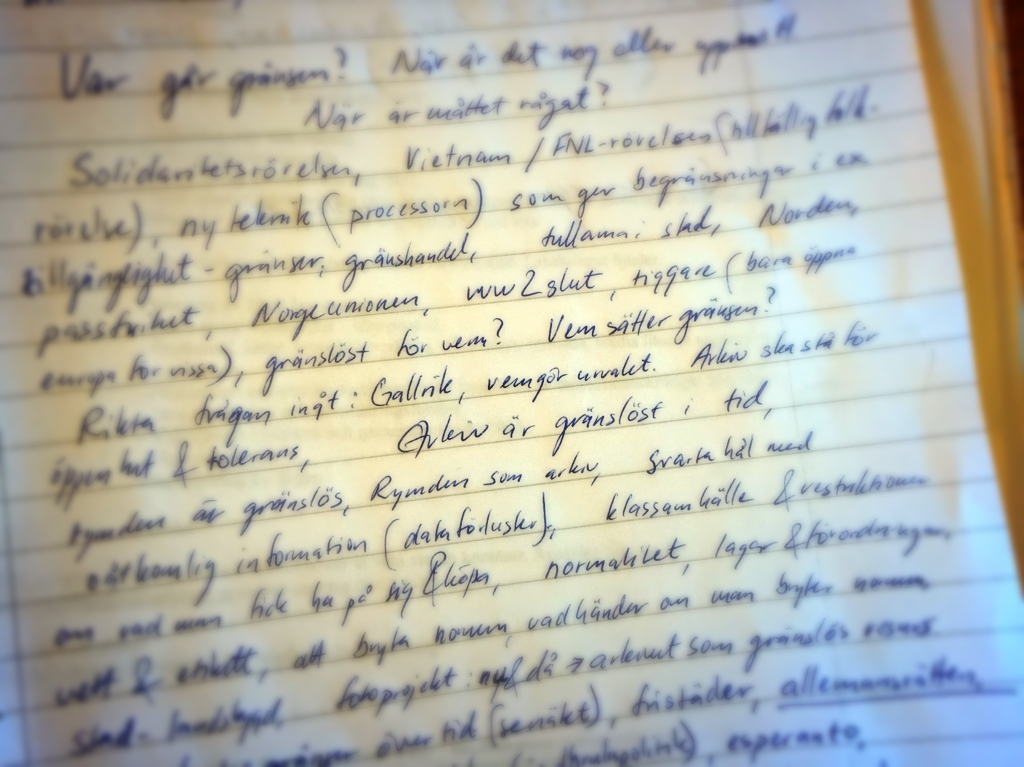 Var går gränsen? När är det nog eller öppnas?
När är måttet rågat?
Solidaritetsrörelsen, Vietnam / FNL-rörelsen (tillfällig folk-
rörelse), ny teknik (processorn) som ger begränsningar i ex
tillgänglighet - gränser, gränshandel, tullarna i stad, Norden,
passfrihet, Norgeunionen, ww2 slut, tiggare (bara öppna
europa för vissa), gränslöst för vem? Vem sätter gränsen?
Rikta frågan inåt: Gallrik, vem gör urvalet. Arkiv ska stå för
öppenhet & tolerans, Arkiv är gränslöst i tid,
rymden är gränslös, Rymden som arkiv, svarta hål med
oåtkomlig information (dataförluster), klassamhälle & restriktioner
om vad man fick ha på sig & köpa, normalitet, lagar & förordningar,
vett & etikett, att bryta normen, vad händer om man bryter normen
stad - landsbygd, fotoprojekt: nu/då → arkivet som gränslös
gränser över tid (senåkt), fristäder, allemansrätten,
esperanto,